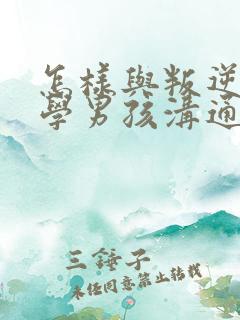 怎樣與叛逆
學男孩溝通
三錘子
未经同意禁止转载